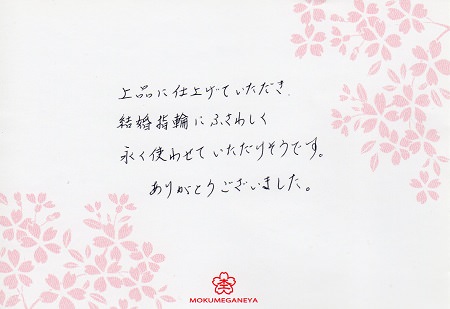 上品に仕上げていただき、
結婚指輪にふさわしく
永く使わせていただけそうです。
ありがとうございました。
MOKUMEGANEYA